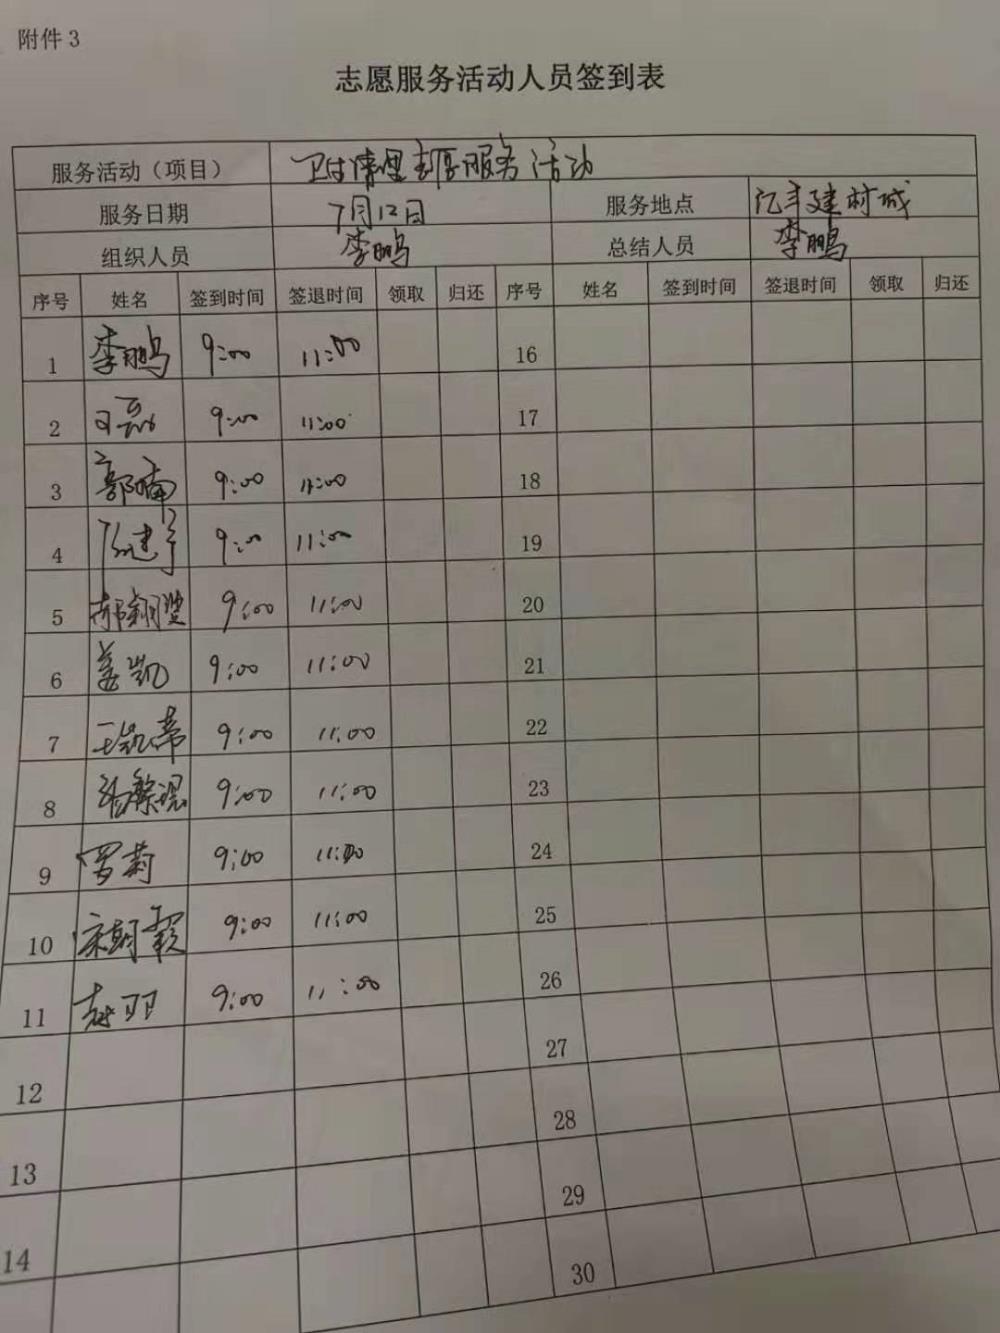 附件3
志愿服务活动人员签到表
服务活动（项目） 卫生清理志愿服务活动
服务日期 7月12日 服务地点 亿丰建材城
组织人员 李鹏 总结人员 李鹏
序号 姓名 签到时间 签退时间 领取 归还 序号 姓名 签到时间 签退时间 领取 归还
1 李鹏 9:00 11:00 16
2 9:00 11:00 17
3 郭楠 9:00 11:00 18
4 9:00 11:00 19
5 9:00 11:00 20
6 姜凯 9:00 11:00 21
7 王凯蒂 9:00 11:00 22
8 9:00 11:00 23
9 罗莉 9:00 11:00 24
10 9:00 11:00 25
11 9:00 11:00 26
12 27
13 28
14 29
30